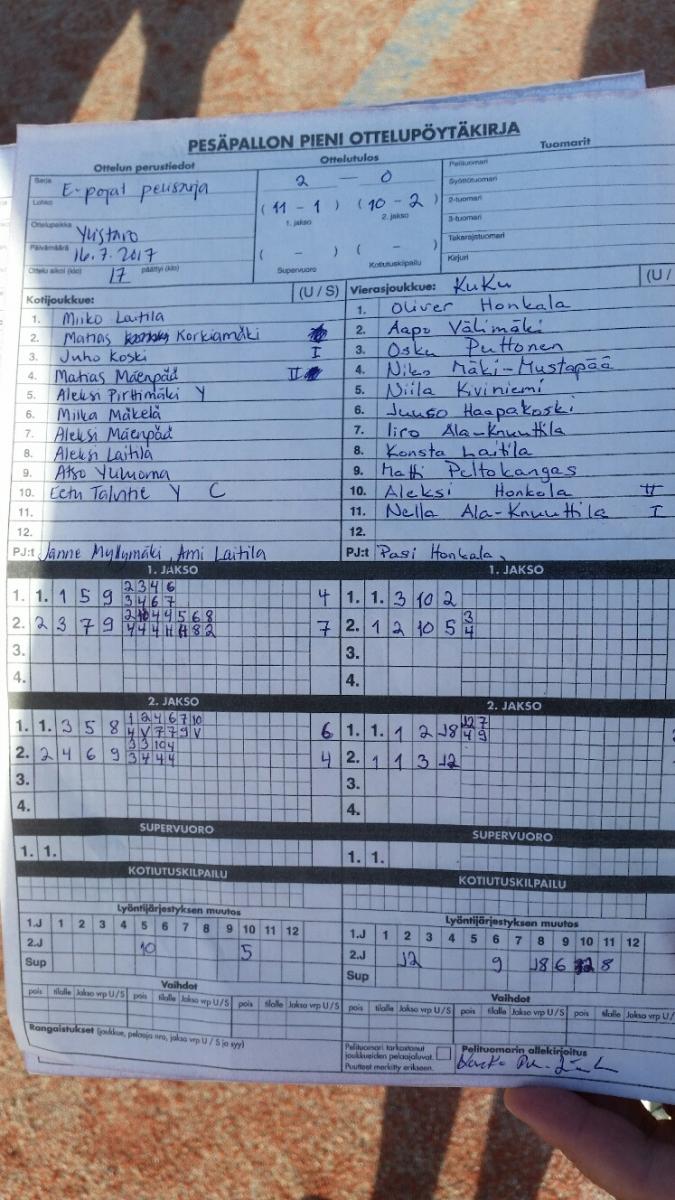 PESÄPALLON PIENI OTTELUPÖYTÄKIRJA
Ottelun perustiedot
Ottelutulos
Tuomarit
Sarja
E-pojat
Lohko
Ottelupaikka
Ylistaro
Päivämäärä
16.7.2017
Ottelu alkoi (klo) 17 päättyi (klo)
2 — 0
(11 - 1) (10 - 2)
1. jakso 2. jakso
( - ) ( - )
Supervuoro Kotiutuskilpailu
Pelituomari
Syöttötuomari
2-tuomari
3-tuomari
Takarajatuomari
Kirjuri
Kotijoukkue: (U / S)
1. Miiko Laitila
2. Matias Korkiamäki
3. Juho Koski I
4. Matias Mäenpää II
5. Aleksi Pirttimäki Y
6. Miika Mäkelä
7. Aleksi Mäenpää
8. Aleksi Laitila
9. Atso
10. Eetu Y C
11.
12.
PJ:t Janne Myllymäki, Ami Laitila
Vierasjoukkue: KuKu (U /
1. Oliver Honkala
2. Aapo Välimäki
3. Osku Puttonen
4. Niko Mäki-Mustapää
5. Niila Kiviniemi
6. Juuso Haapakoski
7. Iiro Ala-Knuuttila
8. Konsta Laitila
9. Matti Peltokangas
10. Aleksi Honkola II
11. Nella Ala-Knuuttila I
12.
PJ:t Pasi Honkala,
1. JAKSO
1. 1. 1 5 9 2 3 4 6 4
3 4 6 7
2. 2 3 7 9 7
3.
4.
1. JAKSO
1. 1. 3 10 2
2. 1 2 10 5 3
4
3.
4.
2. JAKSO
1. 1. 3 5 8 1 2 4 6 7 10 6
4 V 7 7 9 V
2. 2 4 6 9 3 3 10 4 4
3 4 4 4
3.
4.
2. JAKSO
1. 1. 1 2 18 12 7
4 9
2. 1 1 3 12
3.
4.
SUPERVUORO
1. 1.
SUPERVUORO
1. 1.
KOTIUTUSKILPAILU
KOTIUTUSKILPAILU
Lyöntijärjestyksen muutos
1.J 1 2 3 4 5 6 7 8 9 10 11 12
2.J 10 5
Sup
Lyöntijärjestyksen muutos
1.J 1 2 3 4 5 6 7 8 9 10 11 12
2.J 12 9 18 6 8
Sup
Vaihdot
pois tilalle Jakso vrp U/S pois tilalle Jakso vrp U/S pois tilalle Jakso vrp U/S
Vaihdot
pois tilalle Jakso vrp U/S pois tilalle Jakso vrp U/S pois tilalle Jakso vrp U/
Rangaistukset (joukkue, pelaaja nro, jakso vrp U / S ja syy)
Pelituomari tarkastanut
joukkueiden pelaajaluvat.
Puutteet merkitty erikseen.
Pelituomarin allekirjoitus